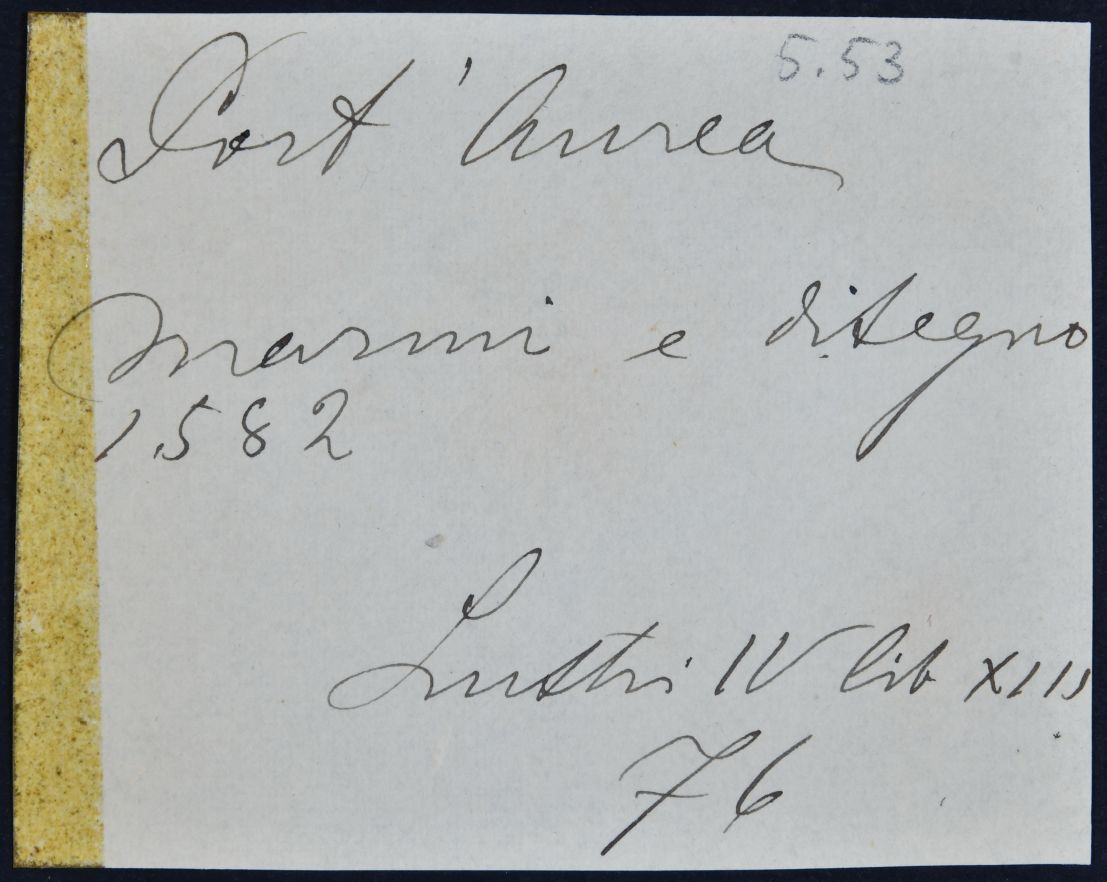 5.53
Port'Aurea
Marmi e disegno
1582
Lustri IV lib XIII
76